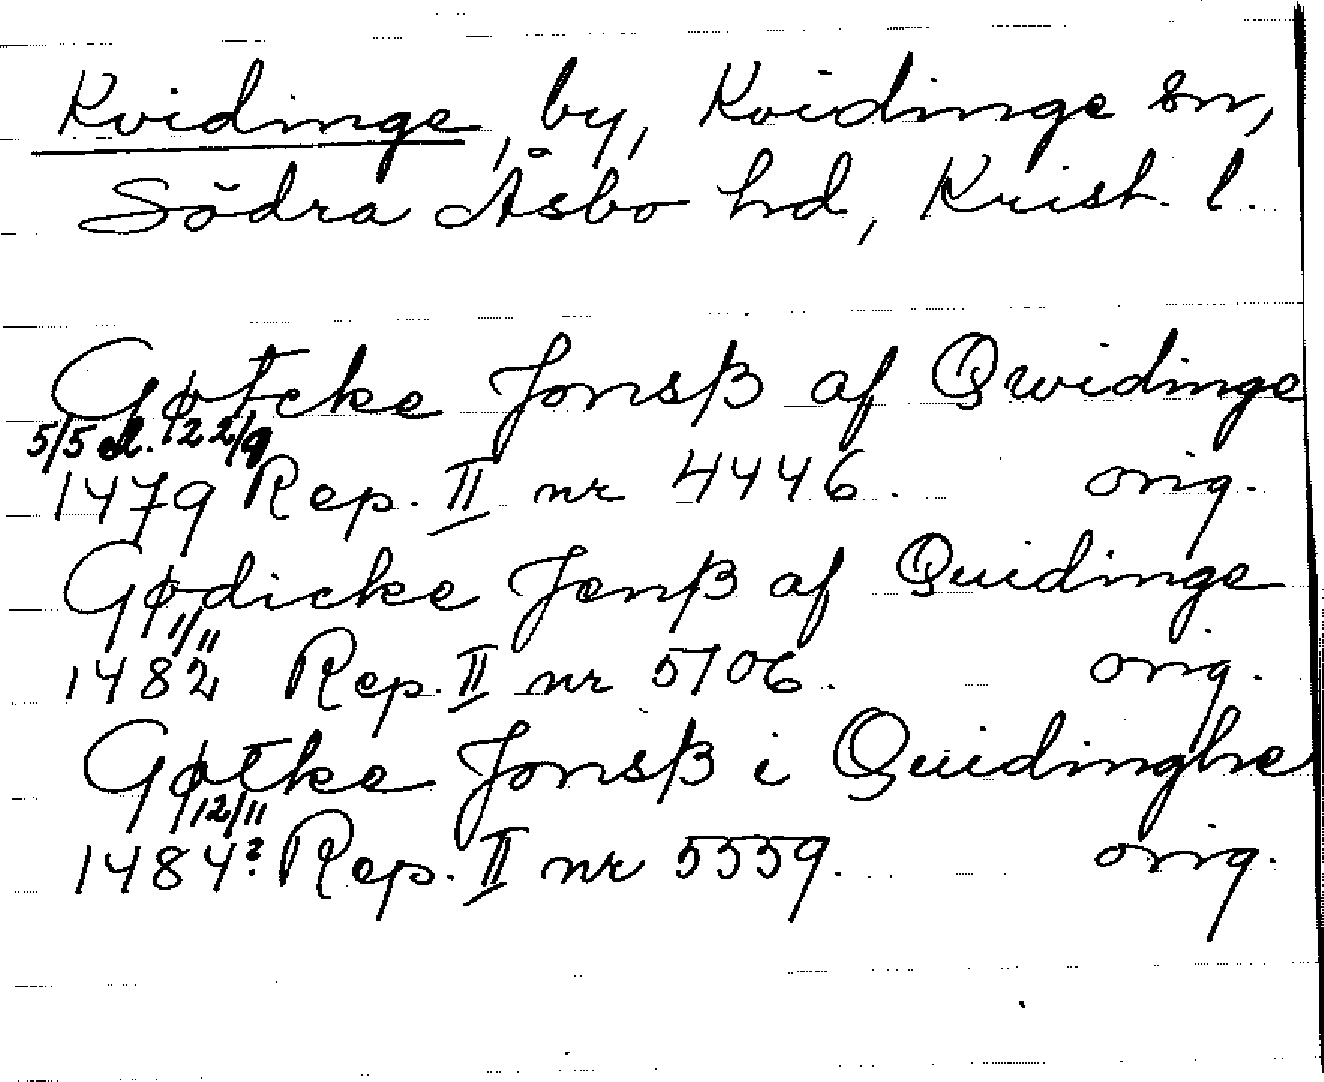 Kvidinge, by, Kvidinge sn,
Södra Åsbo hd, Krist. l.
Gøtcke Jonsß af Qwidinge
5/5 el. 22/9
1479 Rep. II nr 4446. orig.
Gødicke Jenß af Quidinge
11/11
1482 Rep. II nr 5106. orig.
Gøtke Jonsß i Quidinghe
12/11
1484? Rep. II nr 5559. orig.